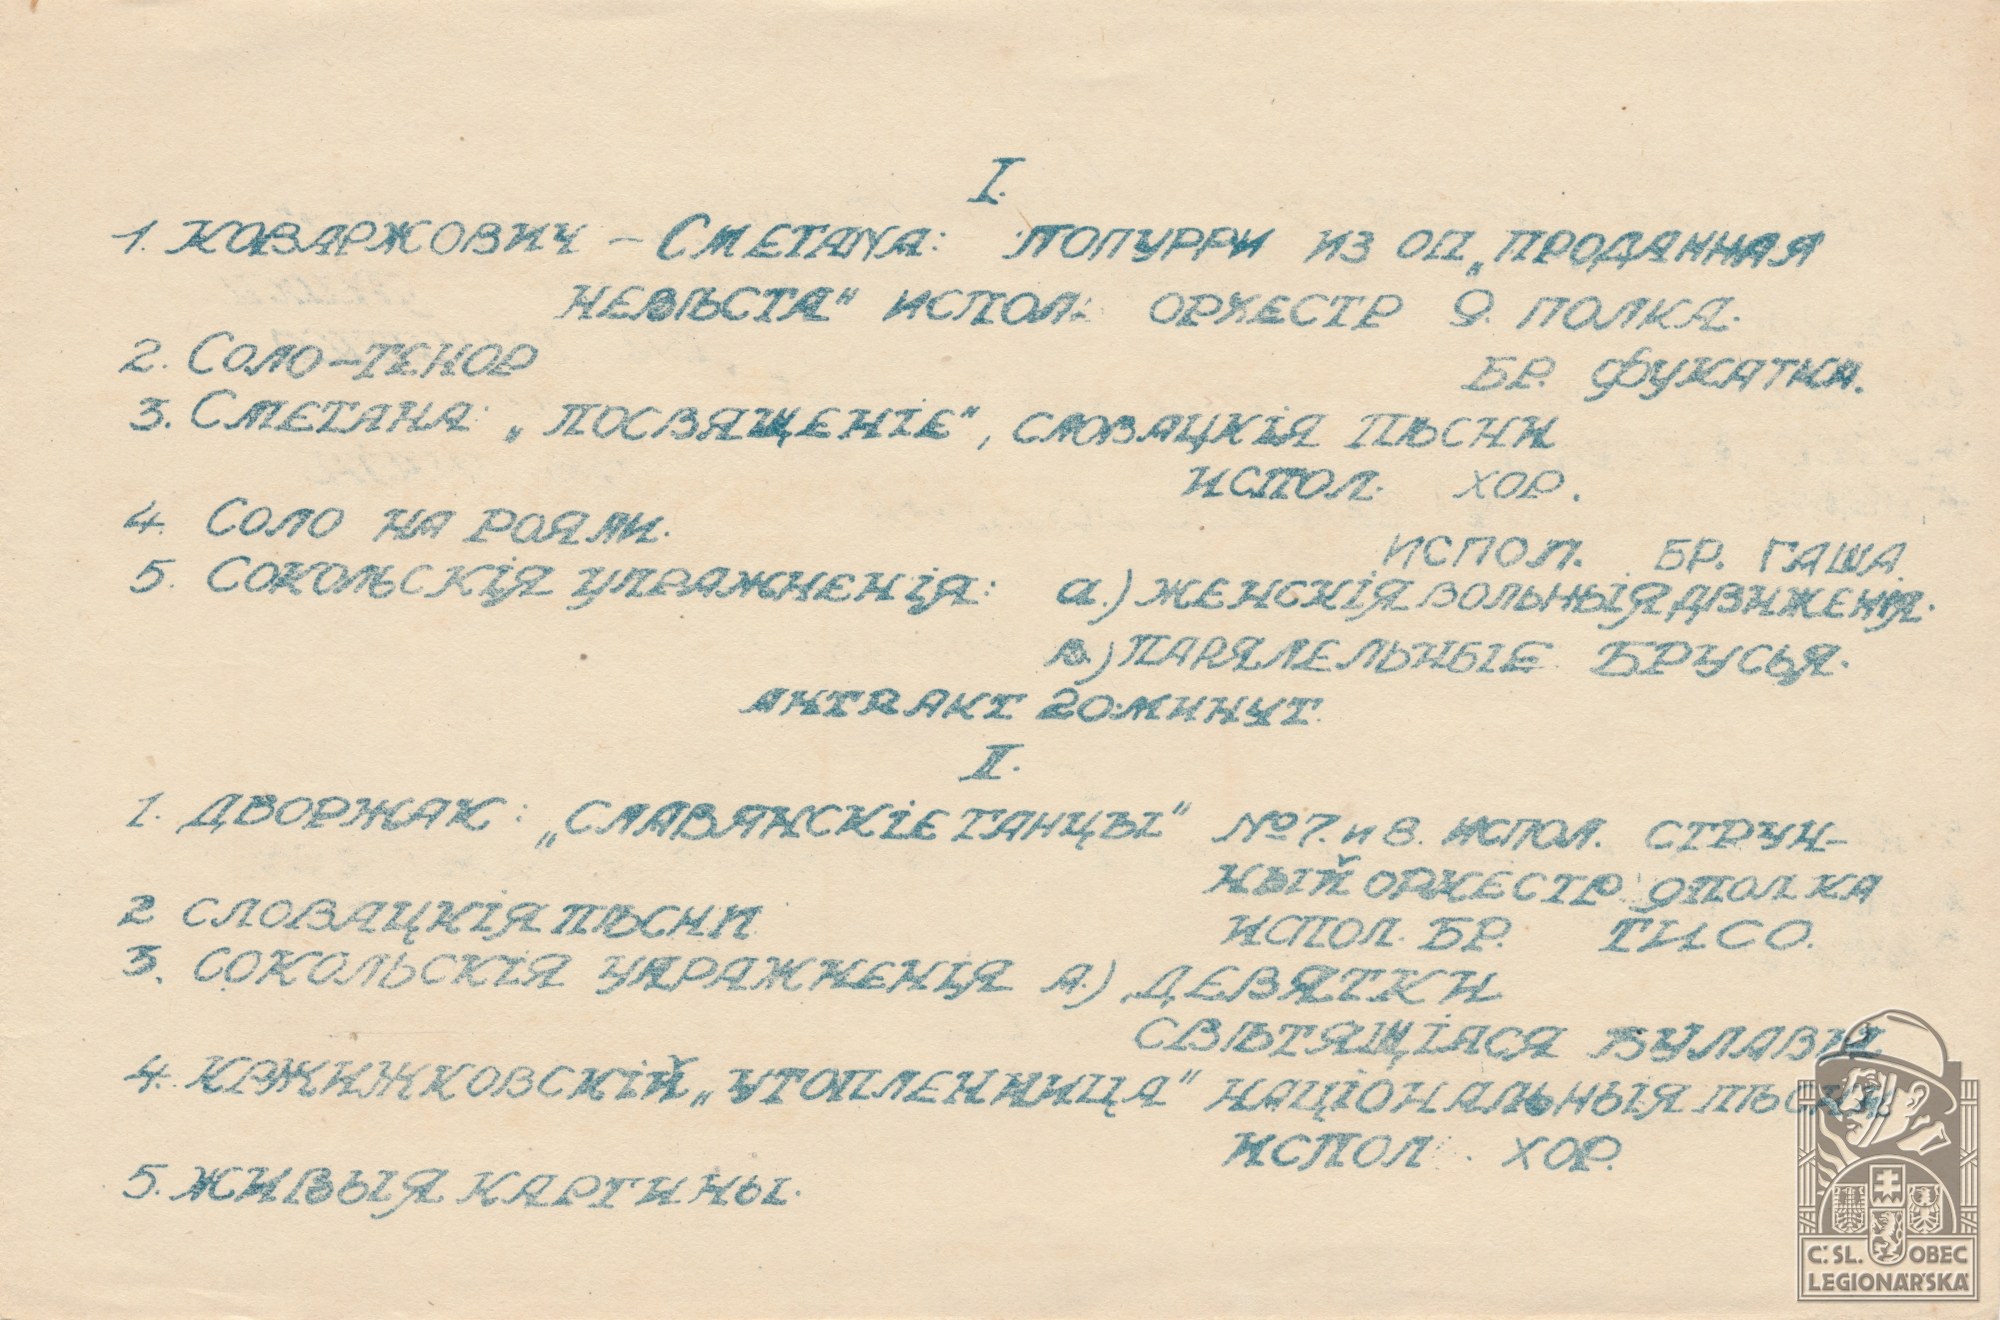 I.
1. Коваржович – Сметана: попурри из оп. „Проданная
невѣста" испол: оркестр 9. полка.
2. Соло-тенор бр. Фукатка.
3. Сметана: „Посвященіе", словацкія пѣсни
испол. хор.
4. Соло на рояли. испол. бр. Гаша.
5. Сокольскія упражненія: а.) женскія вольныя движенія.
в.) паралельные брусья.
Антракт 20 минут.
II.
1. Дворжак: „Славянскіе танцы" № 7. и 8. испол. струн-
ный оркестр 9 полка
2 Словацкія пѣсни испол. бр. Тисо.
3. Сокольскія упражненія а.) девятки
свѣтящіяся булавы
4. Квжижковскій „Утопленница" національныя пѣсни
испол. хор.
5. Живыя картины.
Č. SL. OBEC
LEGIONÁŘSKÁ